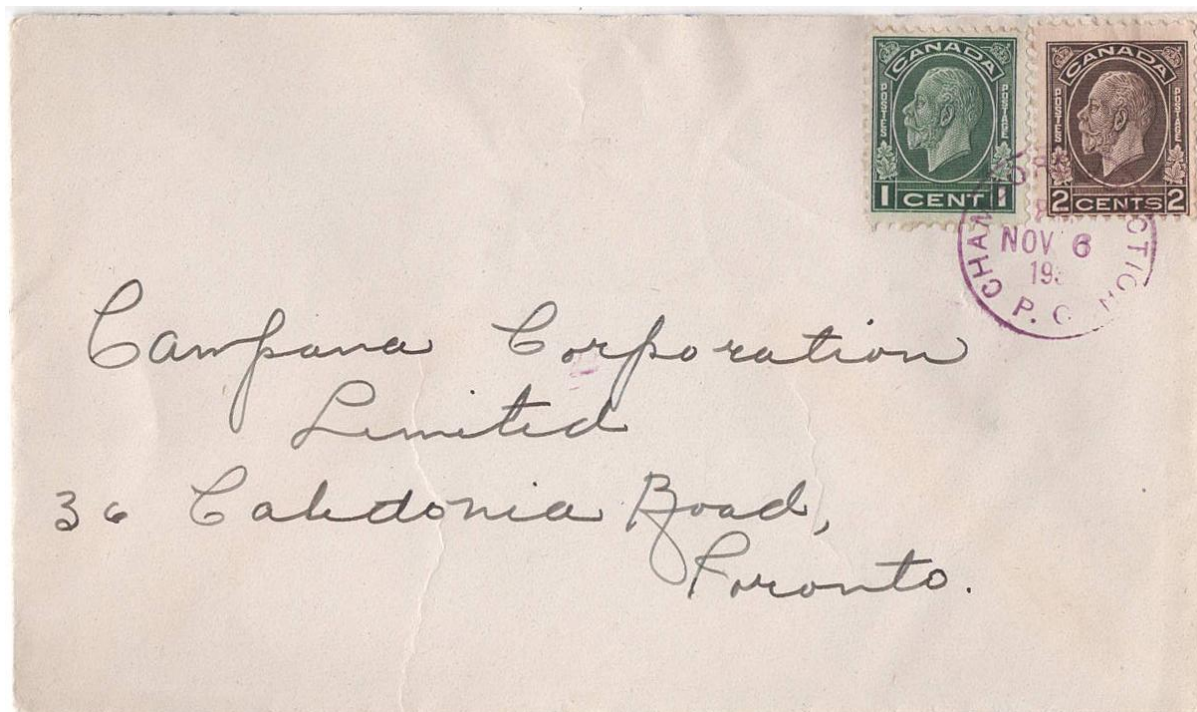 CANADA
POSTES
POSTAGE
1 CENT 1
CANADA
POSTES
POSTAGE
2 CENTS 2
NOV 6
Campana Corporation
Limited
36 Caledonia Road,
Toronto.